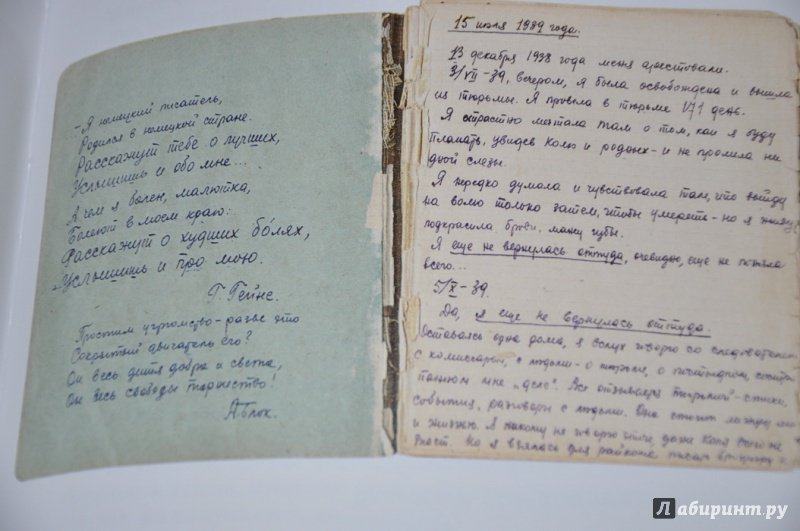 "Я немецкий писатель,
Родился в немецкой стране.
Расскажут тебе о лучших,
Услышишь и обо мне...
А чем я болен, малютка,
Болеют в моем краю:
Расскажут о худших бо́лях,
Услышишь и про мою.
Г. Гейне.
Простим угрюмство – разве это
Сокрытый двигатель его?
Он весь дитя добра и света,
Он весь свободы торжество!
А Блок.
15 июля 1939 года.
13 декабря 1938 года меня арестовали.
3/VII-39, вечером, я была освобождена и вышла
из тюрьмы. Я провела в тюрьме 171 день.
Я страстно мечтала там о том, как я буду
плакать, увидев Колю и родных – и не пролила ни
одной слезы.
Я нередко думала и чувствовала там, что выйду
на волю только затем, чтобы умереть – но я живу,
подкрасила брови, мажу губы.
Я еще не вернулась оттуда, очевидно, еще не поняла
всего...
5/X-39.
Да, я еще не вернулась оттуда.
Оставаясь одна дома, я вслух говорю со следователем,
с комиссаром, с людьми – о тюрьме, о постыдном, состряпанном
мне "деле". Все отзывается тюрьмой – стихи,
события, разговоры с людьми. Она стоит между мной
и жизнью. Я никому не говорю даже Коля
Но я взялась для райкома
Лабиринт.ру